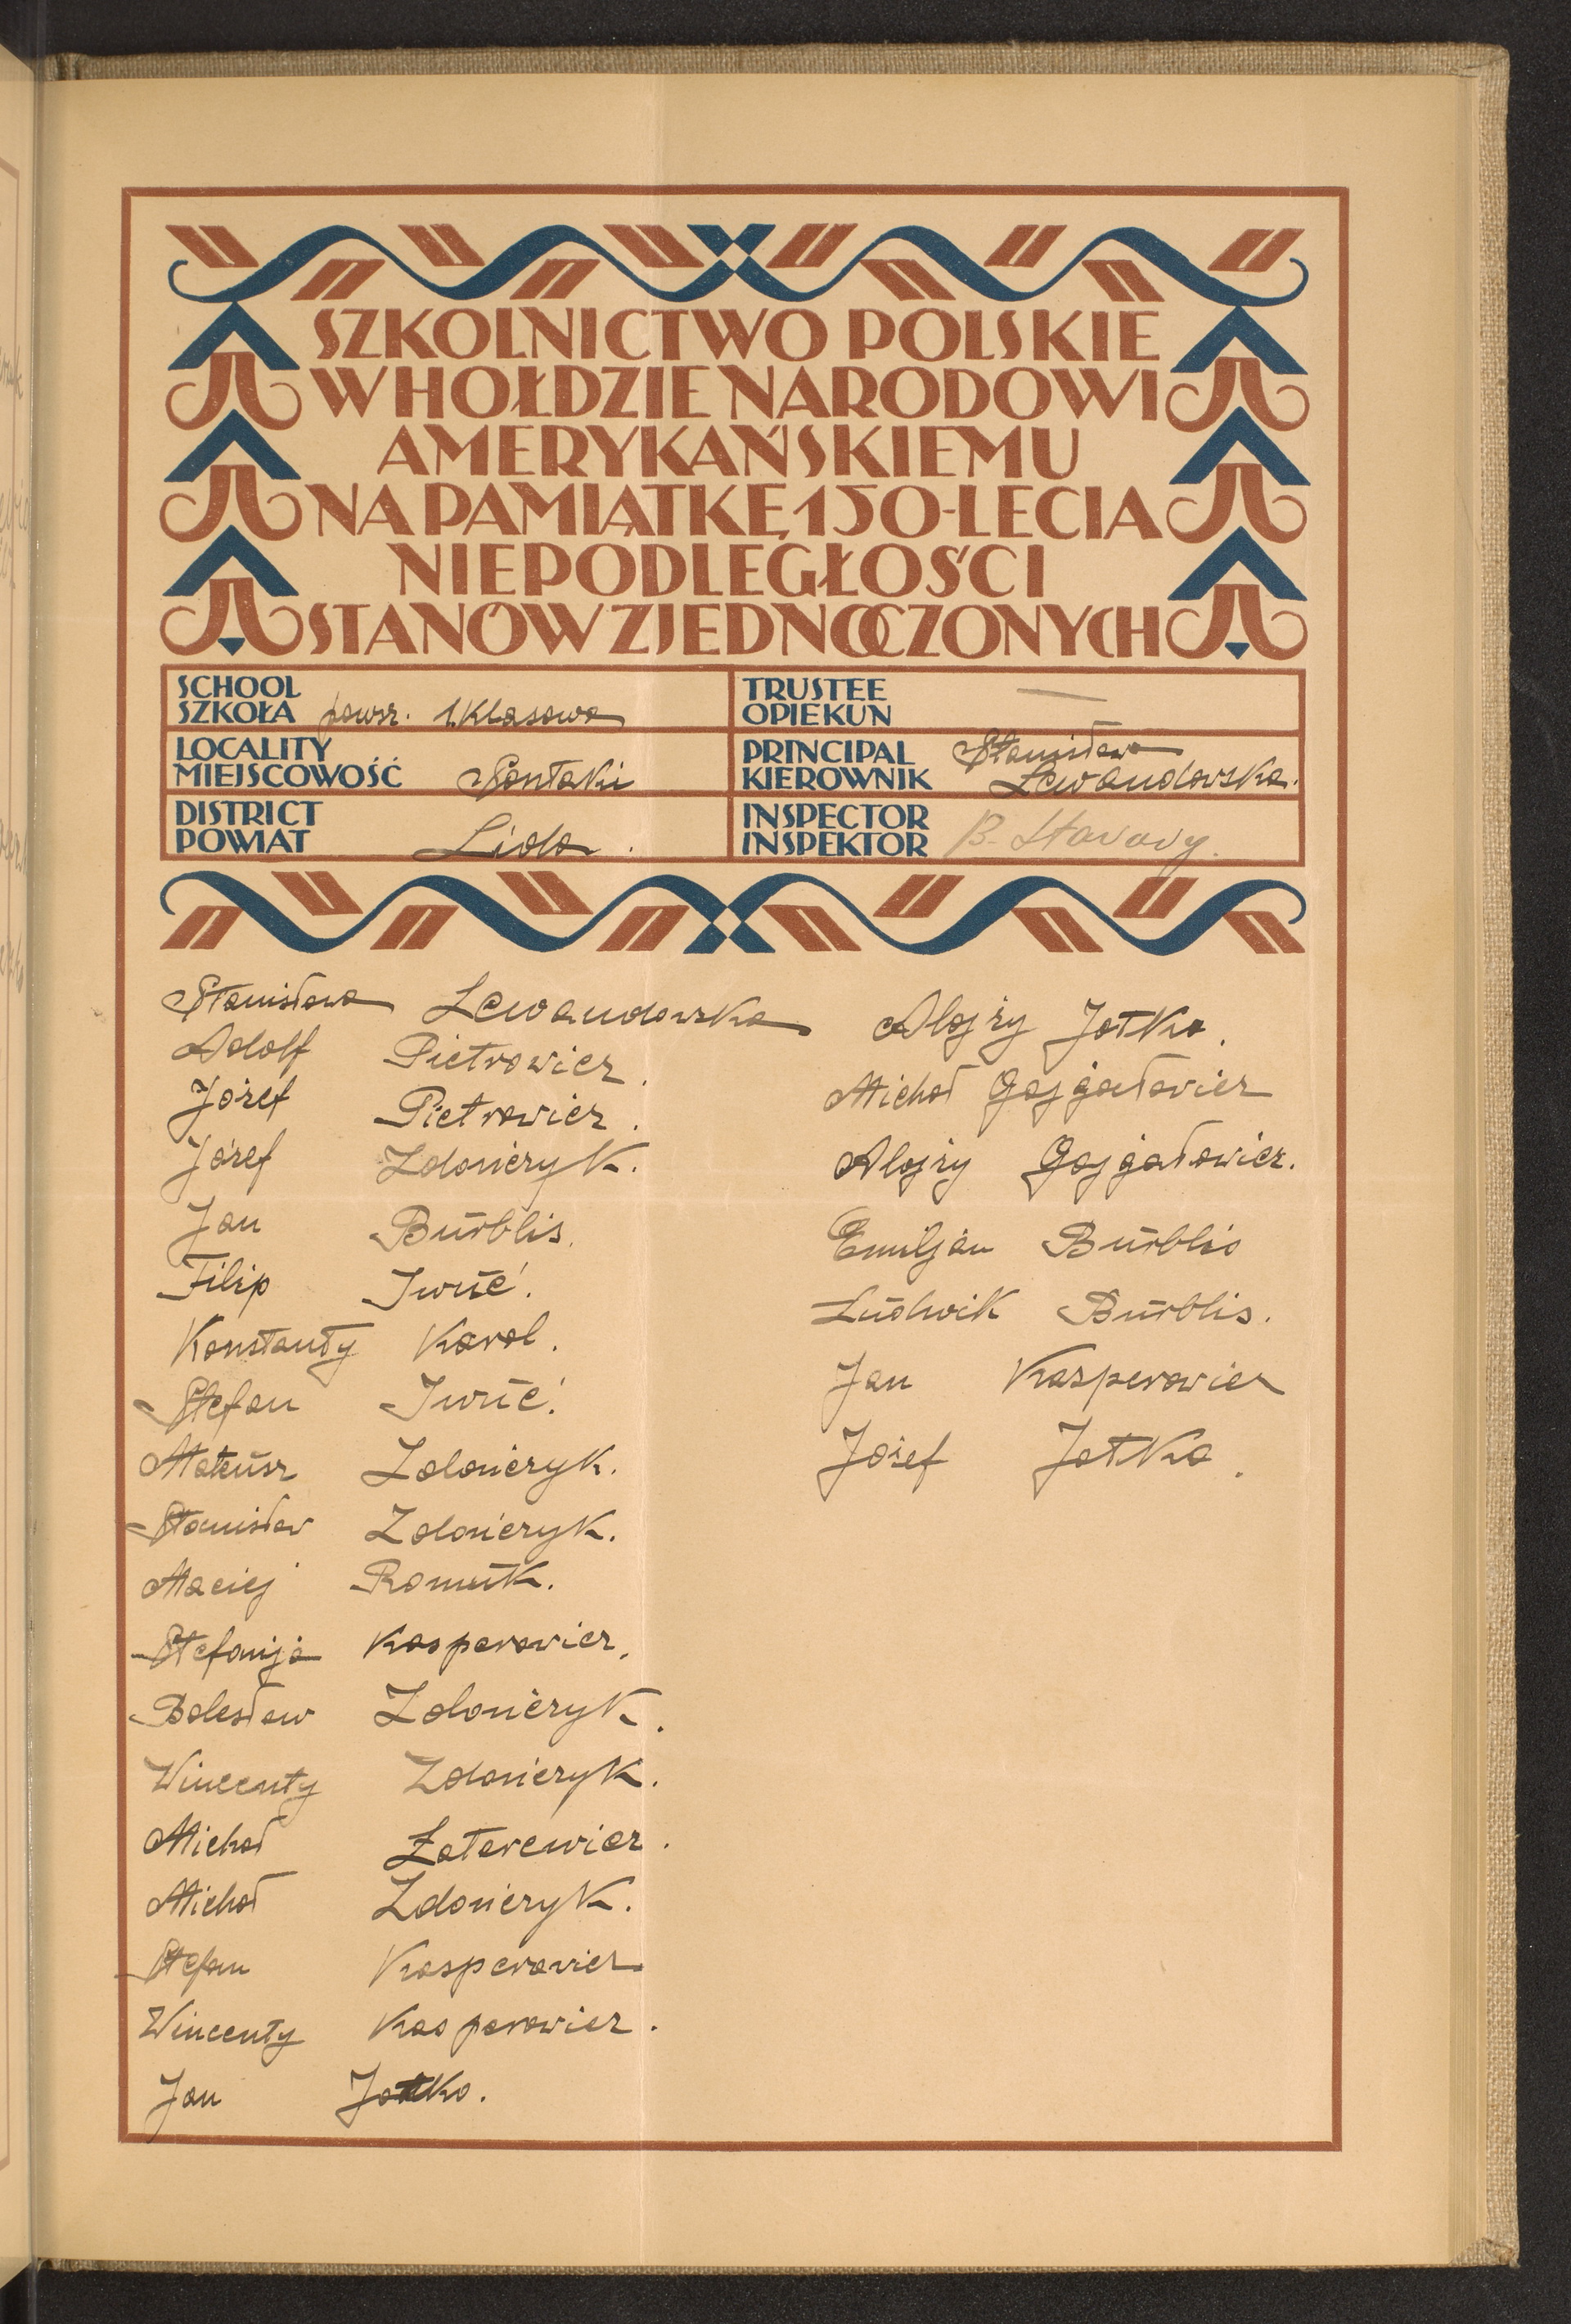 SZKOLNICTWO POLSKIE
W HOŁDZIE NARODOWI
AMERYKAŃSKIEMU
NA PAMIĄTKĘ 150-LECIA
NIEPODLEGŁOŚCI
STANÓW ZJEDNOCZONYCH
SCHOOL
SZKOŁA powsz. 1.Klasowa
LOCALITY
MIEJSCOWOŚĆ Sontaki
DISTRICT
POWIAT Lida.
TRUSTEE
OPIEKUN —
PRINCIPAL Stanisława
KIEROWNIK Lewandowska.
INSPECTOR
INSPEKTOR B.
Stanisława Lewandowska
Adolf Pietrowicz.
Józef Pietrowicz.
Józef Zdończyk.
Jan Burblis.
Filip Iwuć.
Konstanty Karol.
Stefan Iwuć.
Mateusz Zdończyk.
Stanisław Zdończyk.
Maciej Romuk.
Stefanja Kasperowicz.
Bolesław Zdończyk.
Wincenty Zdończyk.
Michał Łatarewicz.
Michał Zdończyk.
Stefan Kasperowicz
Wincenty Kasperowicz.
Jan Jatko.
Alojzy Jatko.
Michał Gajgałowicz
Alojzy Gajgałowicz.
Emiljan Burblis
Ludwik Burblis.
Jan Kasperowicz
Józef Jatko.